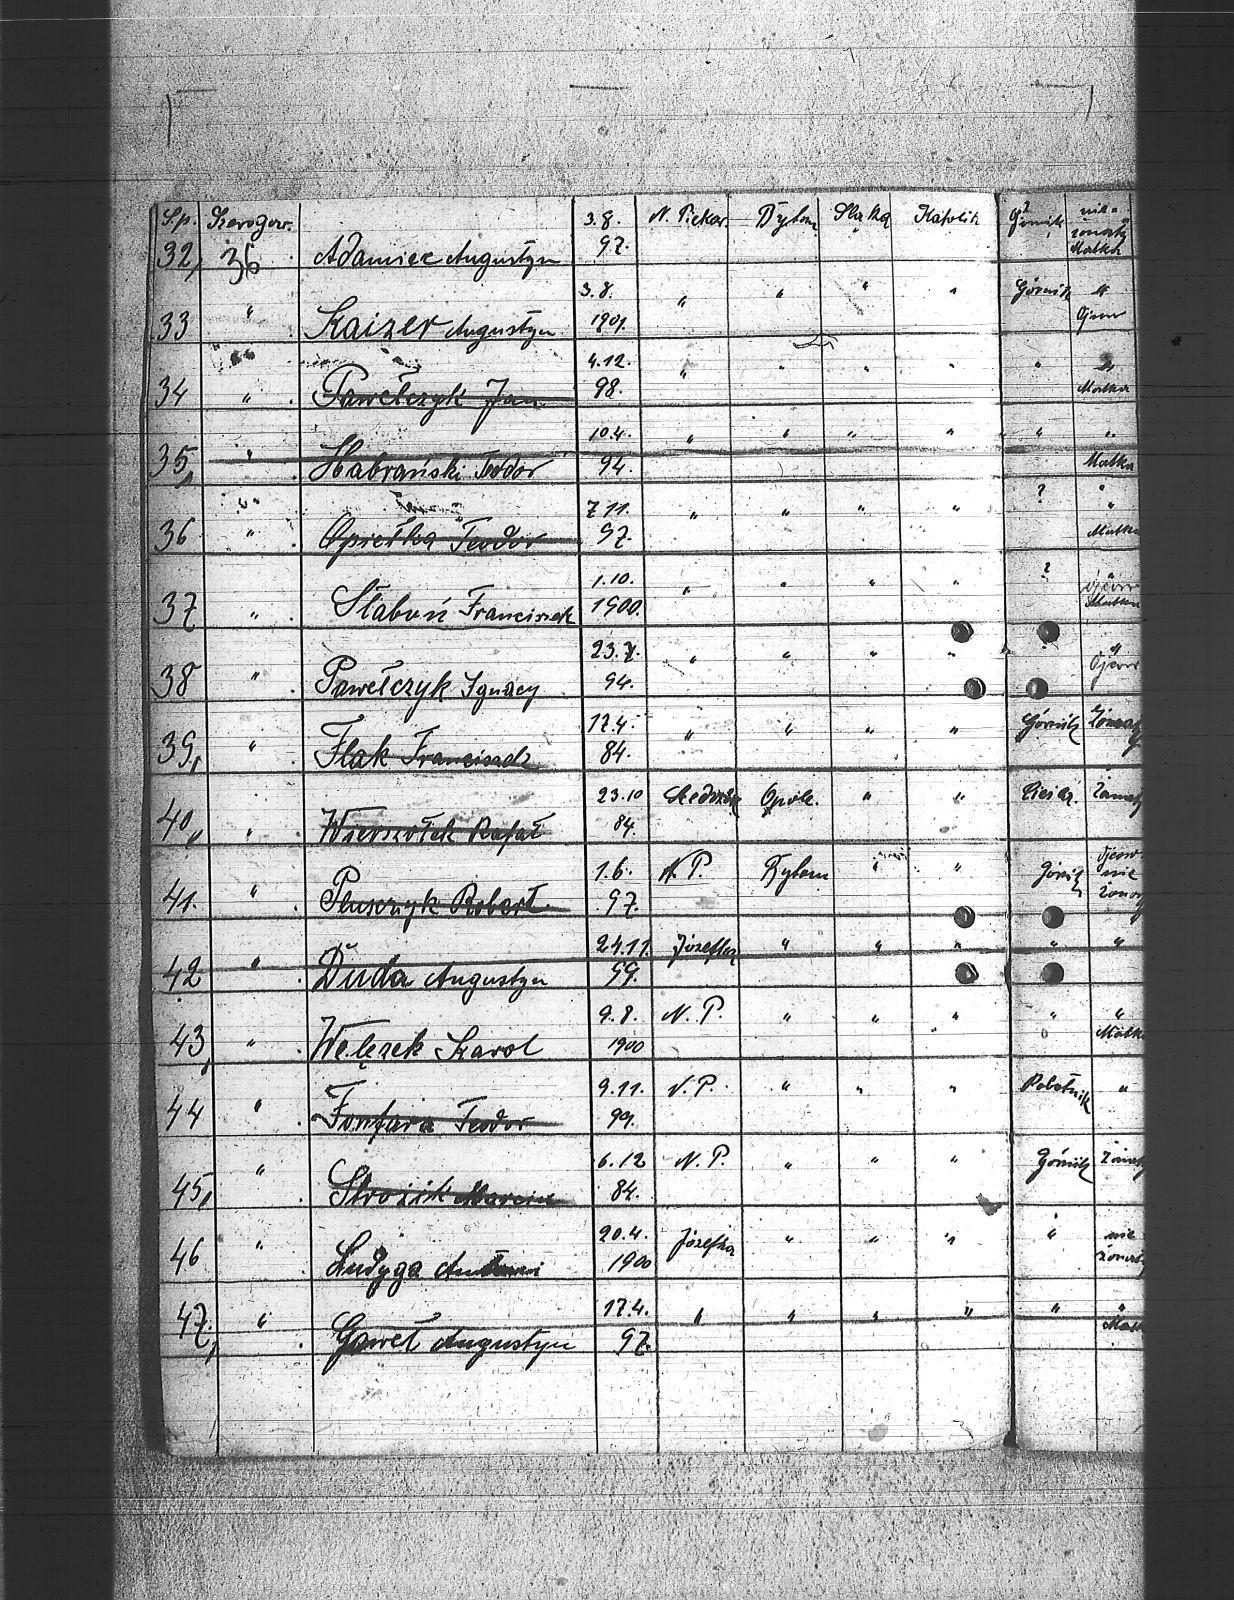 32, 36 Adamiec Augustyn 3.8. 97. N. Piekar Bytom Śląska Katolik Górnik nie- żonaty Matka
33 " Kaizer Augustyn 3.8. 1901. " " " " Górnik " Ojciec
34 " Pawełczyk Jan 4.12. 98. " " " " " " Matka
35, " Habrański Teodor 10.4. 94. " " " " " " Matka
36 " Opiełka Teodor 7.11. 97. " " " " ? " Matka
37 " Słaboń Franciszek 1.10. 1900. " " " " ? "
38 " Pawełczyk Ignacy 23.7. 94. " " " " "
39, " Flak Franciszek 17.4. 84. " " " " Górnik Żonaty
40, " Wierszołek Rafał 23.10 84. Opole " " Żonaty
41. " Pluszczyk Robert 1.6. 97. N. P. Bytom " " Górnik nie żonaty
42 " Duda Augustyn 24.11. 99. Józefka " " " " "
43, " Wełczek Karol 9.8. 1900 N. P. " " " " " Matka
44 " Fonfara Teodor 9.11. 99. N. P. " " " Robotnik "
45, " Strozik Marcin 6.12 84. N. P. " " " Górnik Żonaty
46 " Ludyga Antoni 20.4. 1900 Józefka " " " " nie żonaty
47, " Gaweł Augustyn 17.4. 97. " " " " " "